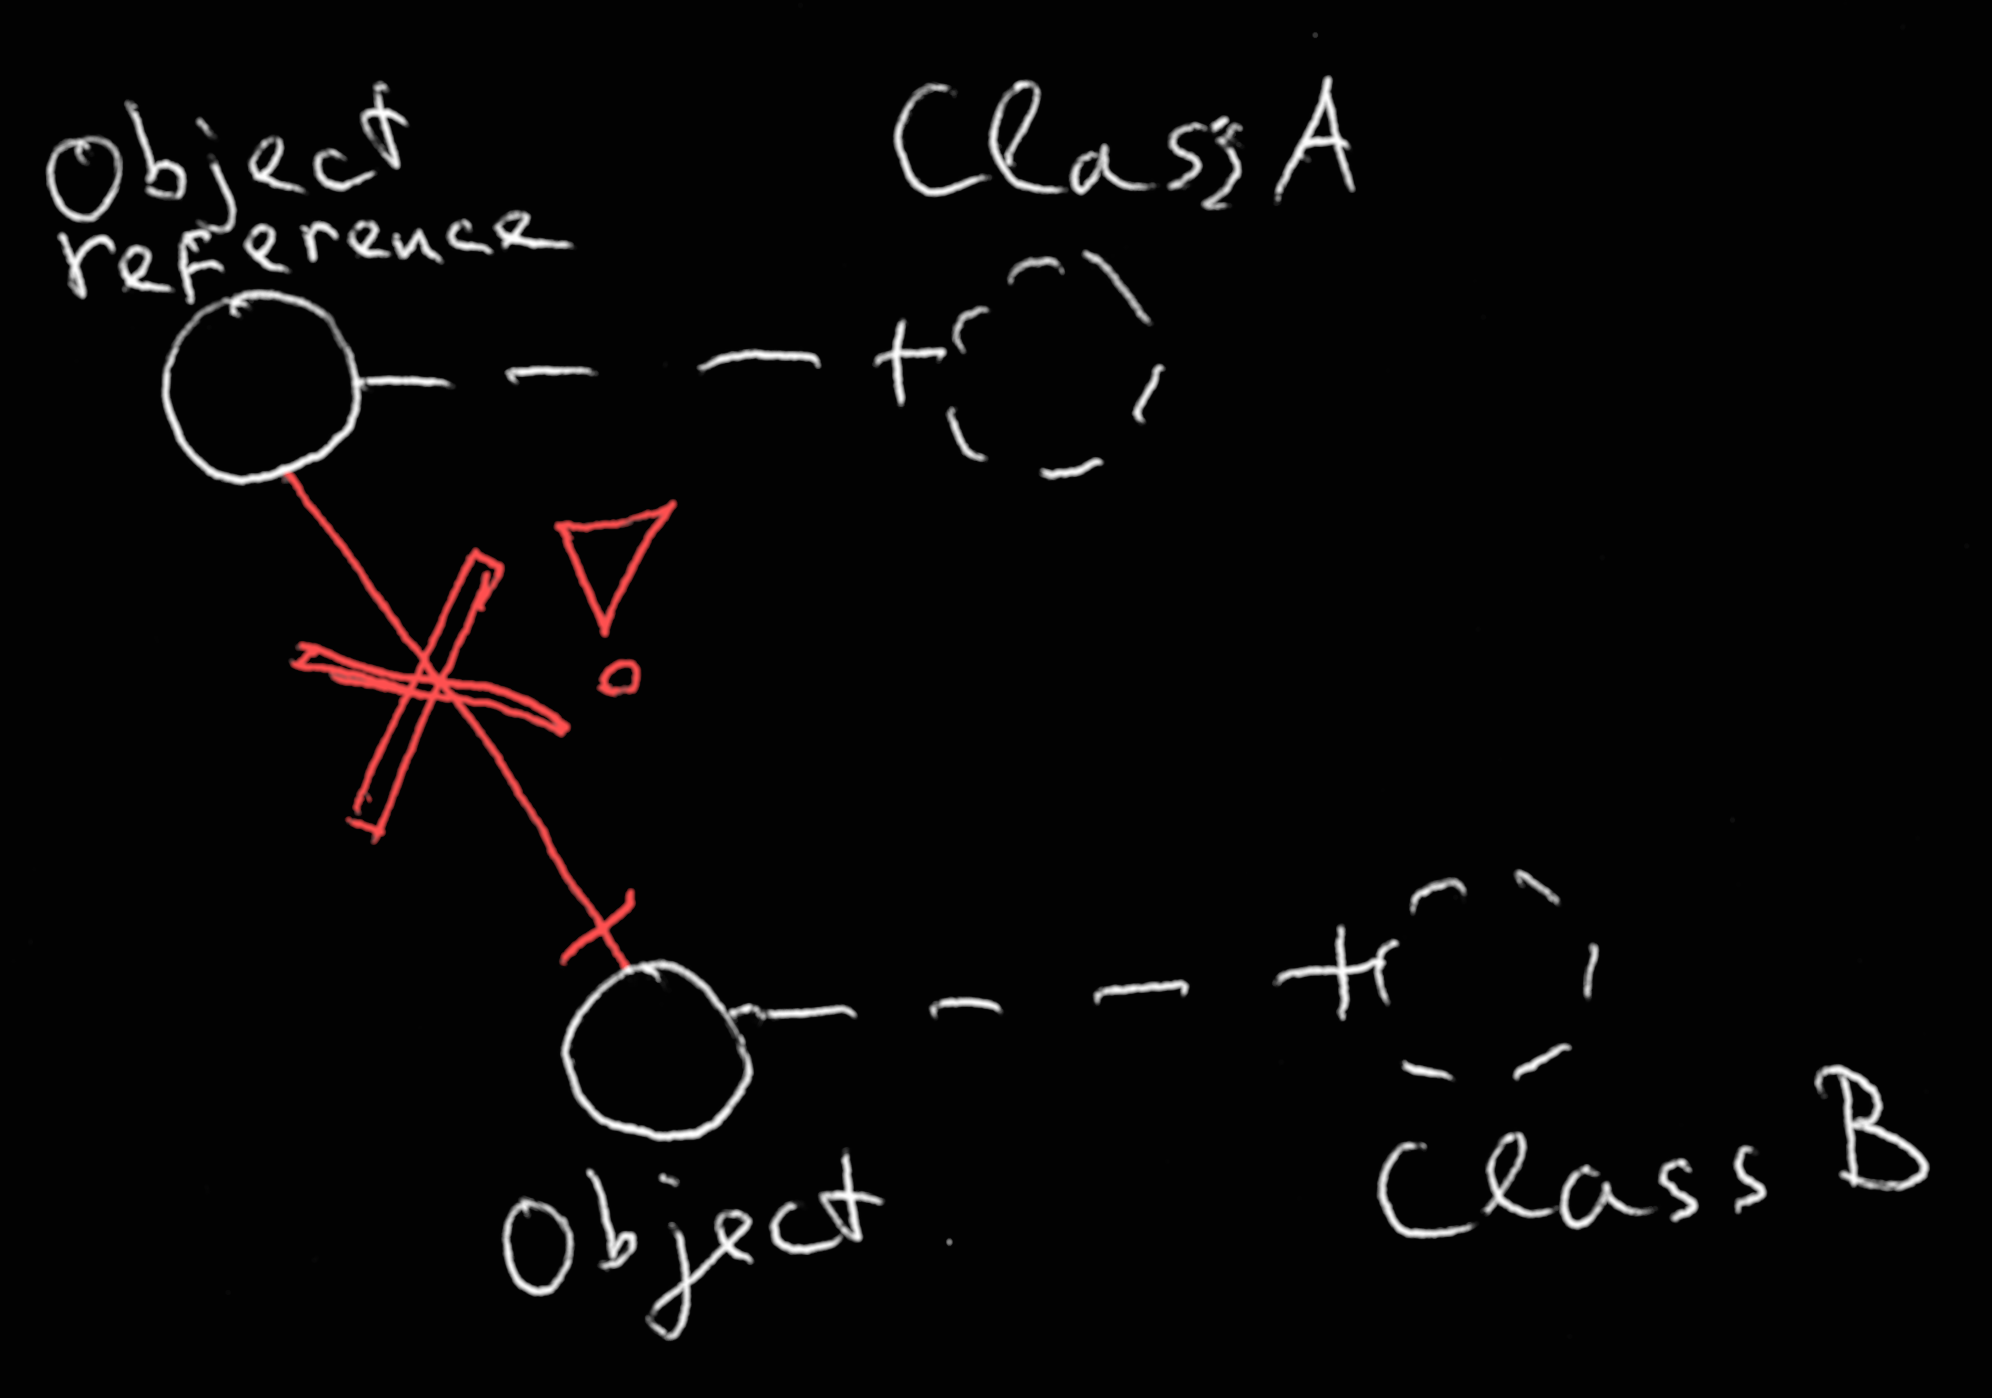 Object
reference
Class A
!
Object
Class B